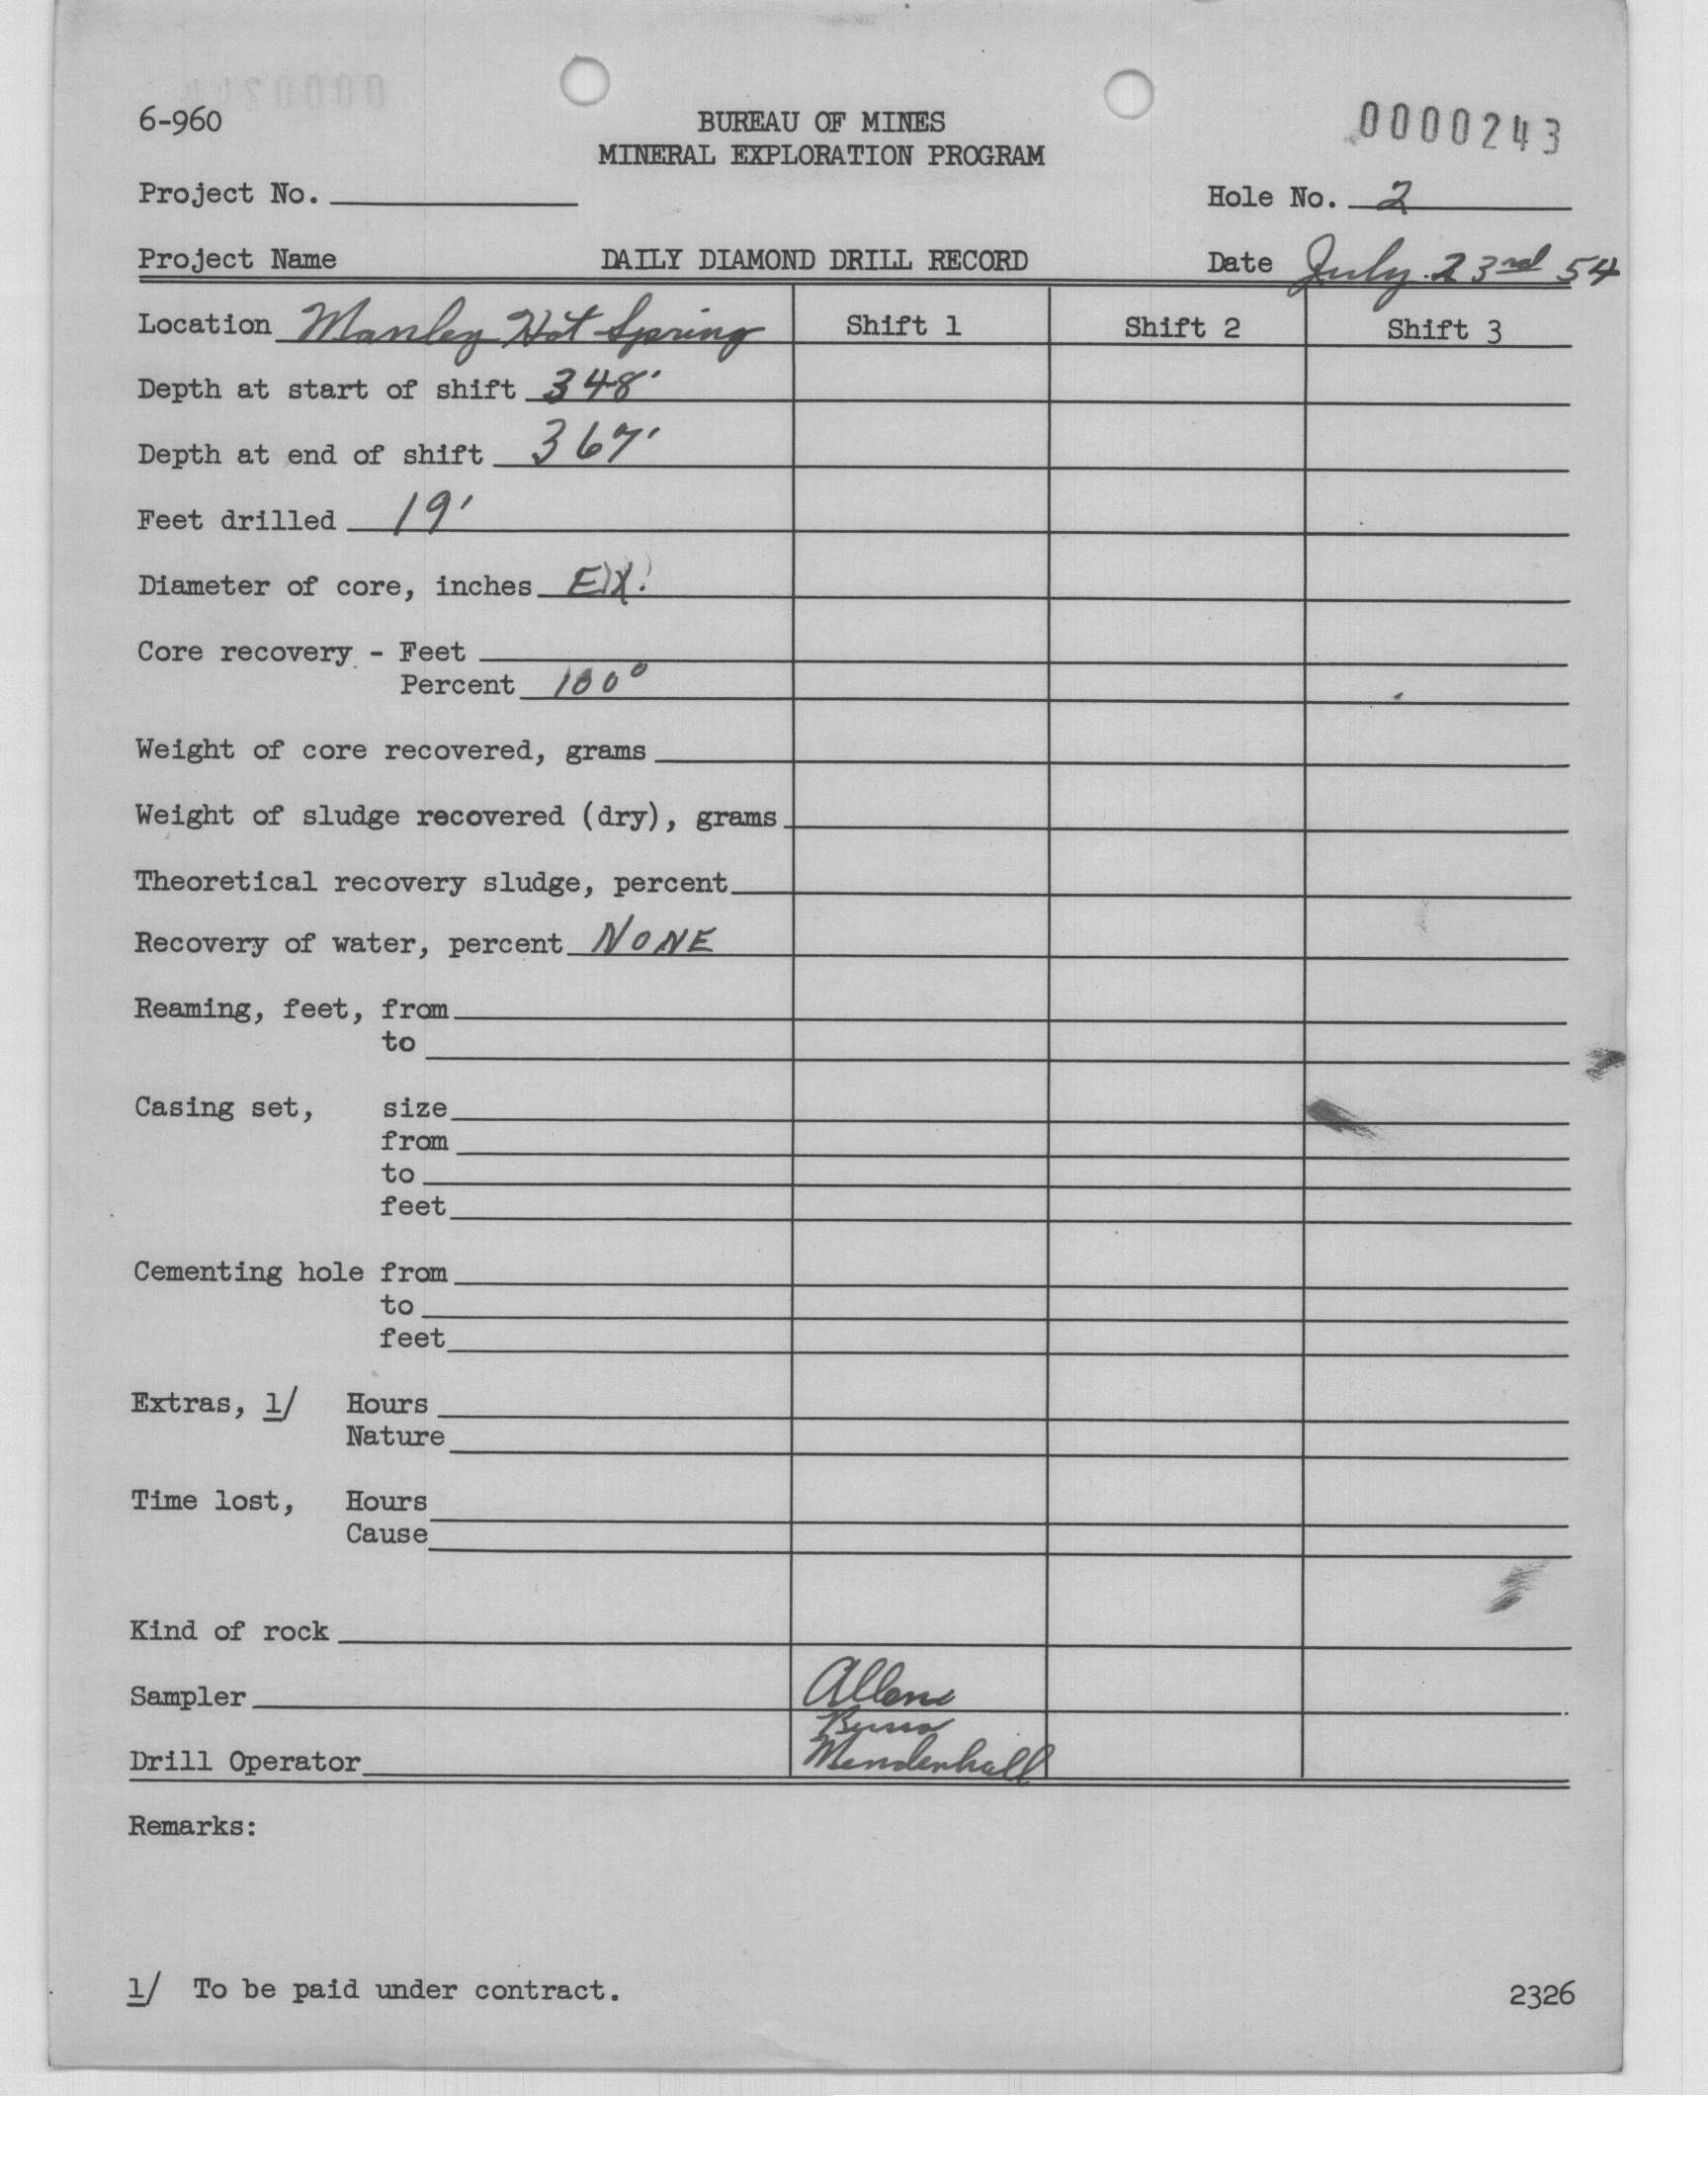 6-960
BUREAU OF MINES
0000243
MINERAL EXPLORATION PROGRAM
Project No.
Hole No. 2
Project Name DAILY DIAMOND DRILL RECORD Date July 23rd 54
Location Manley Hot Spring Shift 1 Shift 2 Shift 3
Depth at start of shift 348'
Depth at end of shift 367'
Feet drilled 19'
Diameter of core, inches EX.
Core recovery - Feet
Percent 100°
Weight of core recovered, grams
Weight of sludge recovered (dry), grams
Theoretical recovery sludge, percent
Recovery of water, percent NONE
Reaming, feet, from
to
Casing set, size
from
to
feet
Cementing hole from
to
feet
Extras, 1/ Hours
Nature
Time lost, Hours
Cause
Kind of rock
Sampler
Drill Operator Mendenhall
Remarks:
1/ To be paid under contract.
2326